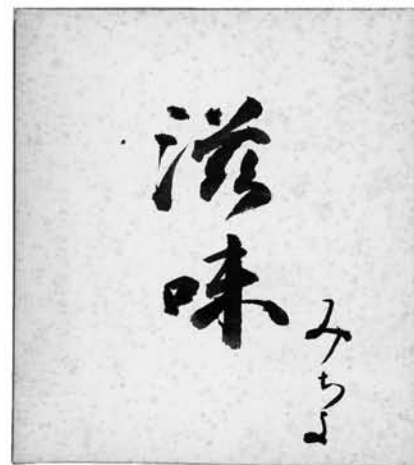 滋味
みちよ